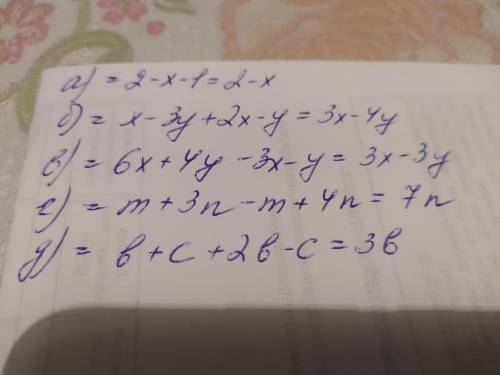 а) = 2-x-1=2-x
б) = x-3y+2x-y=3x-4y
в) = 6x+4y-3x-y=3x-3y
г) = m+3n-m+4n=7n
д) = b+c+2b-c=3b